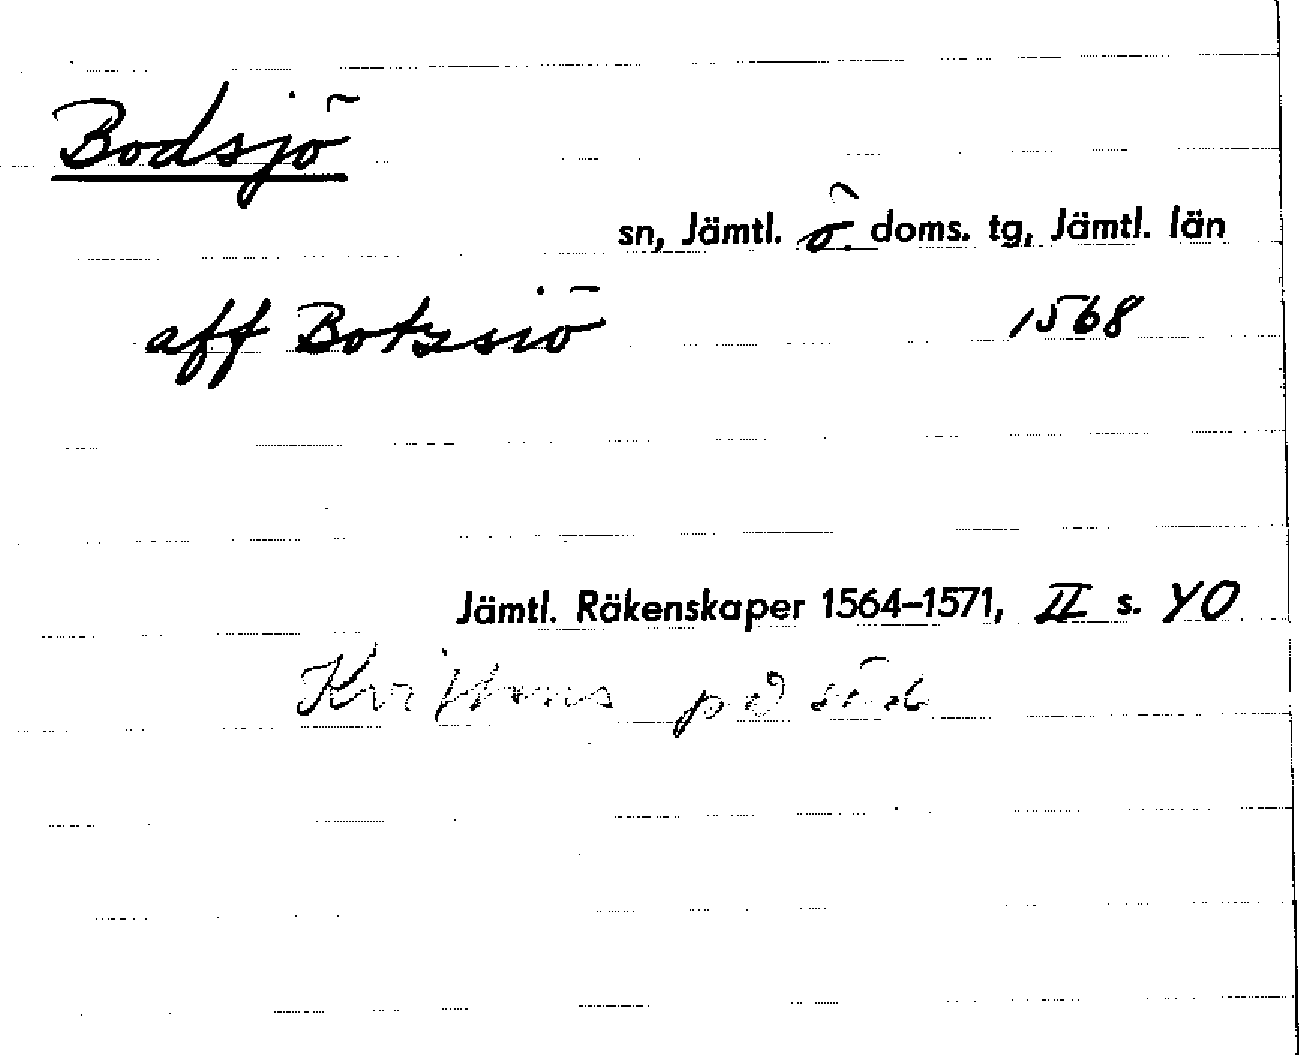 Bodsjö
sn, Jämtl. ö. doms. tg, Jämtl. län
aff Botzsiö 1568
Jämtl. Räkenskaper 1564–1571, II s. 40
på